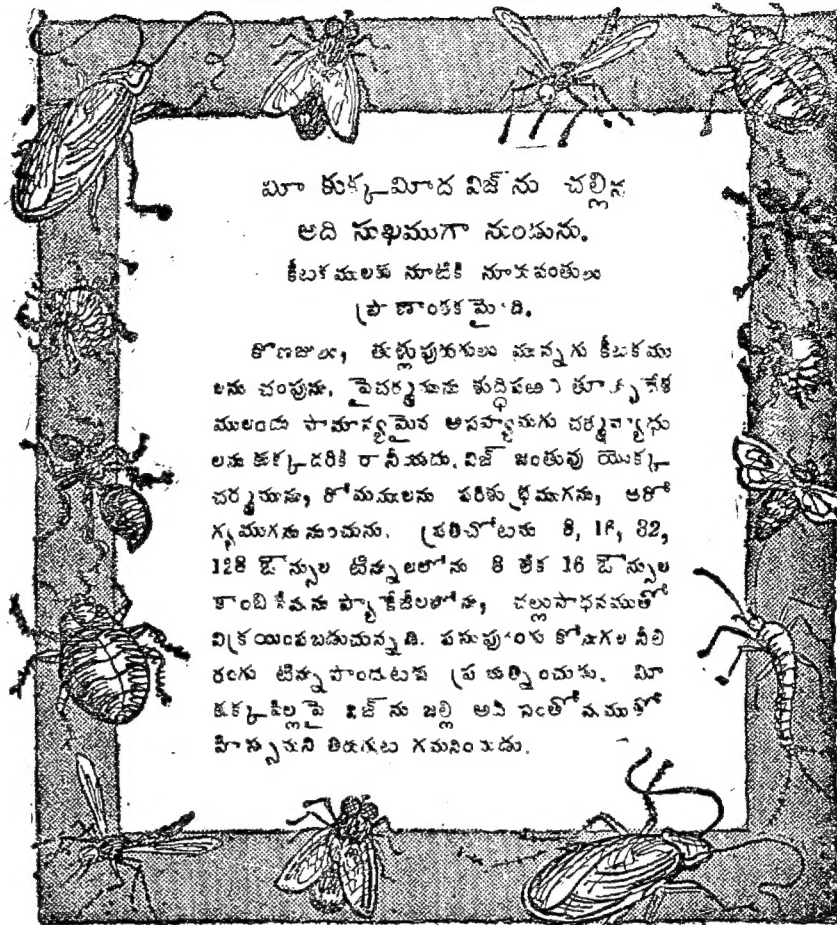 మీ కుక్క మీద విజ్ ను చల్లిన
అది సుఖముగా నుండును.
కీటకములకు నూటికి నూరువంతులు
ప్రాణాంతకమైది.
కొణజులు, తుళ్లుపురుగులు మున్నగు కీటకము
లను చంపును. పైచర్మమును శుద్ధిపఱచి
ములందు సామాన్యమైన అసహ్యమగు చర్మవ్యాధు
లను కుక్కదరికి రానీయదు. విజ్ జంతువు యొక్క
చర్మమును, రోమములను పరిశుభ్రముగను, ఆరో
గ్యముగను నుంచును. ప్రతిచోటను 8, 16, 32,
128 ఔన్సుల టిన్నులలోను 8 లేక 16 ఔన్సుల
కాంబినేషను ప్యాకేజీలలోను, చల్లుసాధనముతో
విక్రయింపబడుచున్నది. పసుపురంగు కోనుగల నీలి
రంగు టిన్ను పొందుటకు ప్రయత్నించుడు. మీ
కుక్కపిల్లపై విజ్ ను జల్లి అది సంతోషముతో
తిరుగుట గమనించుడు.